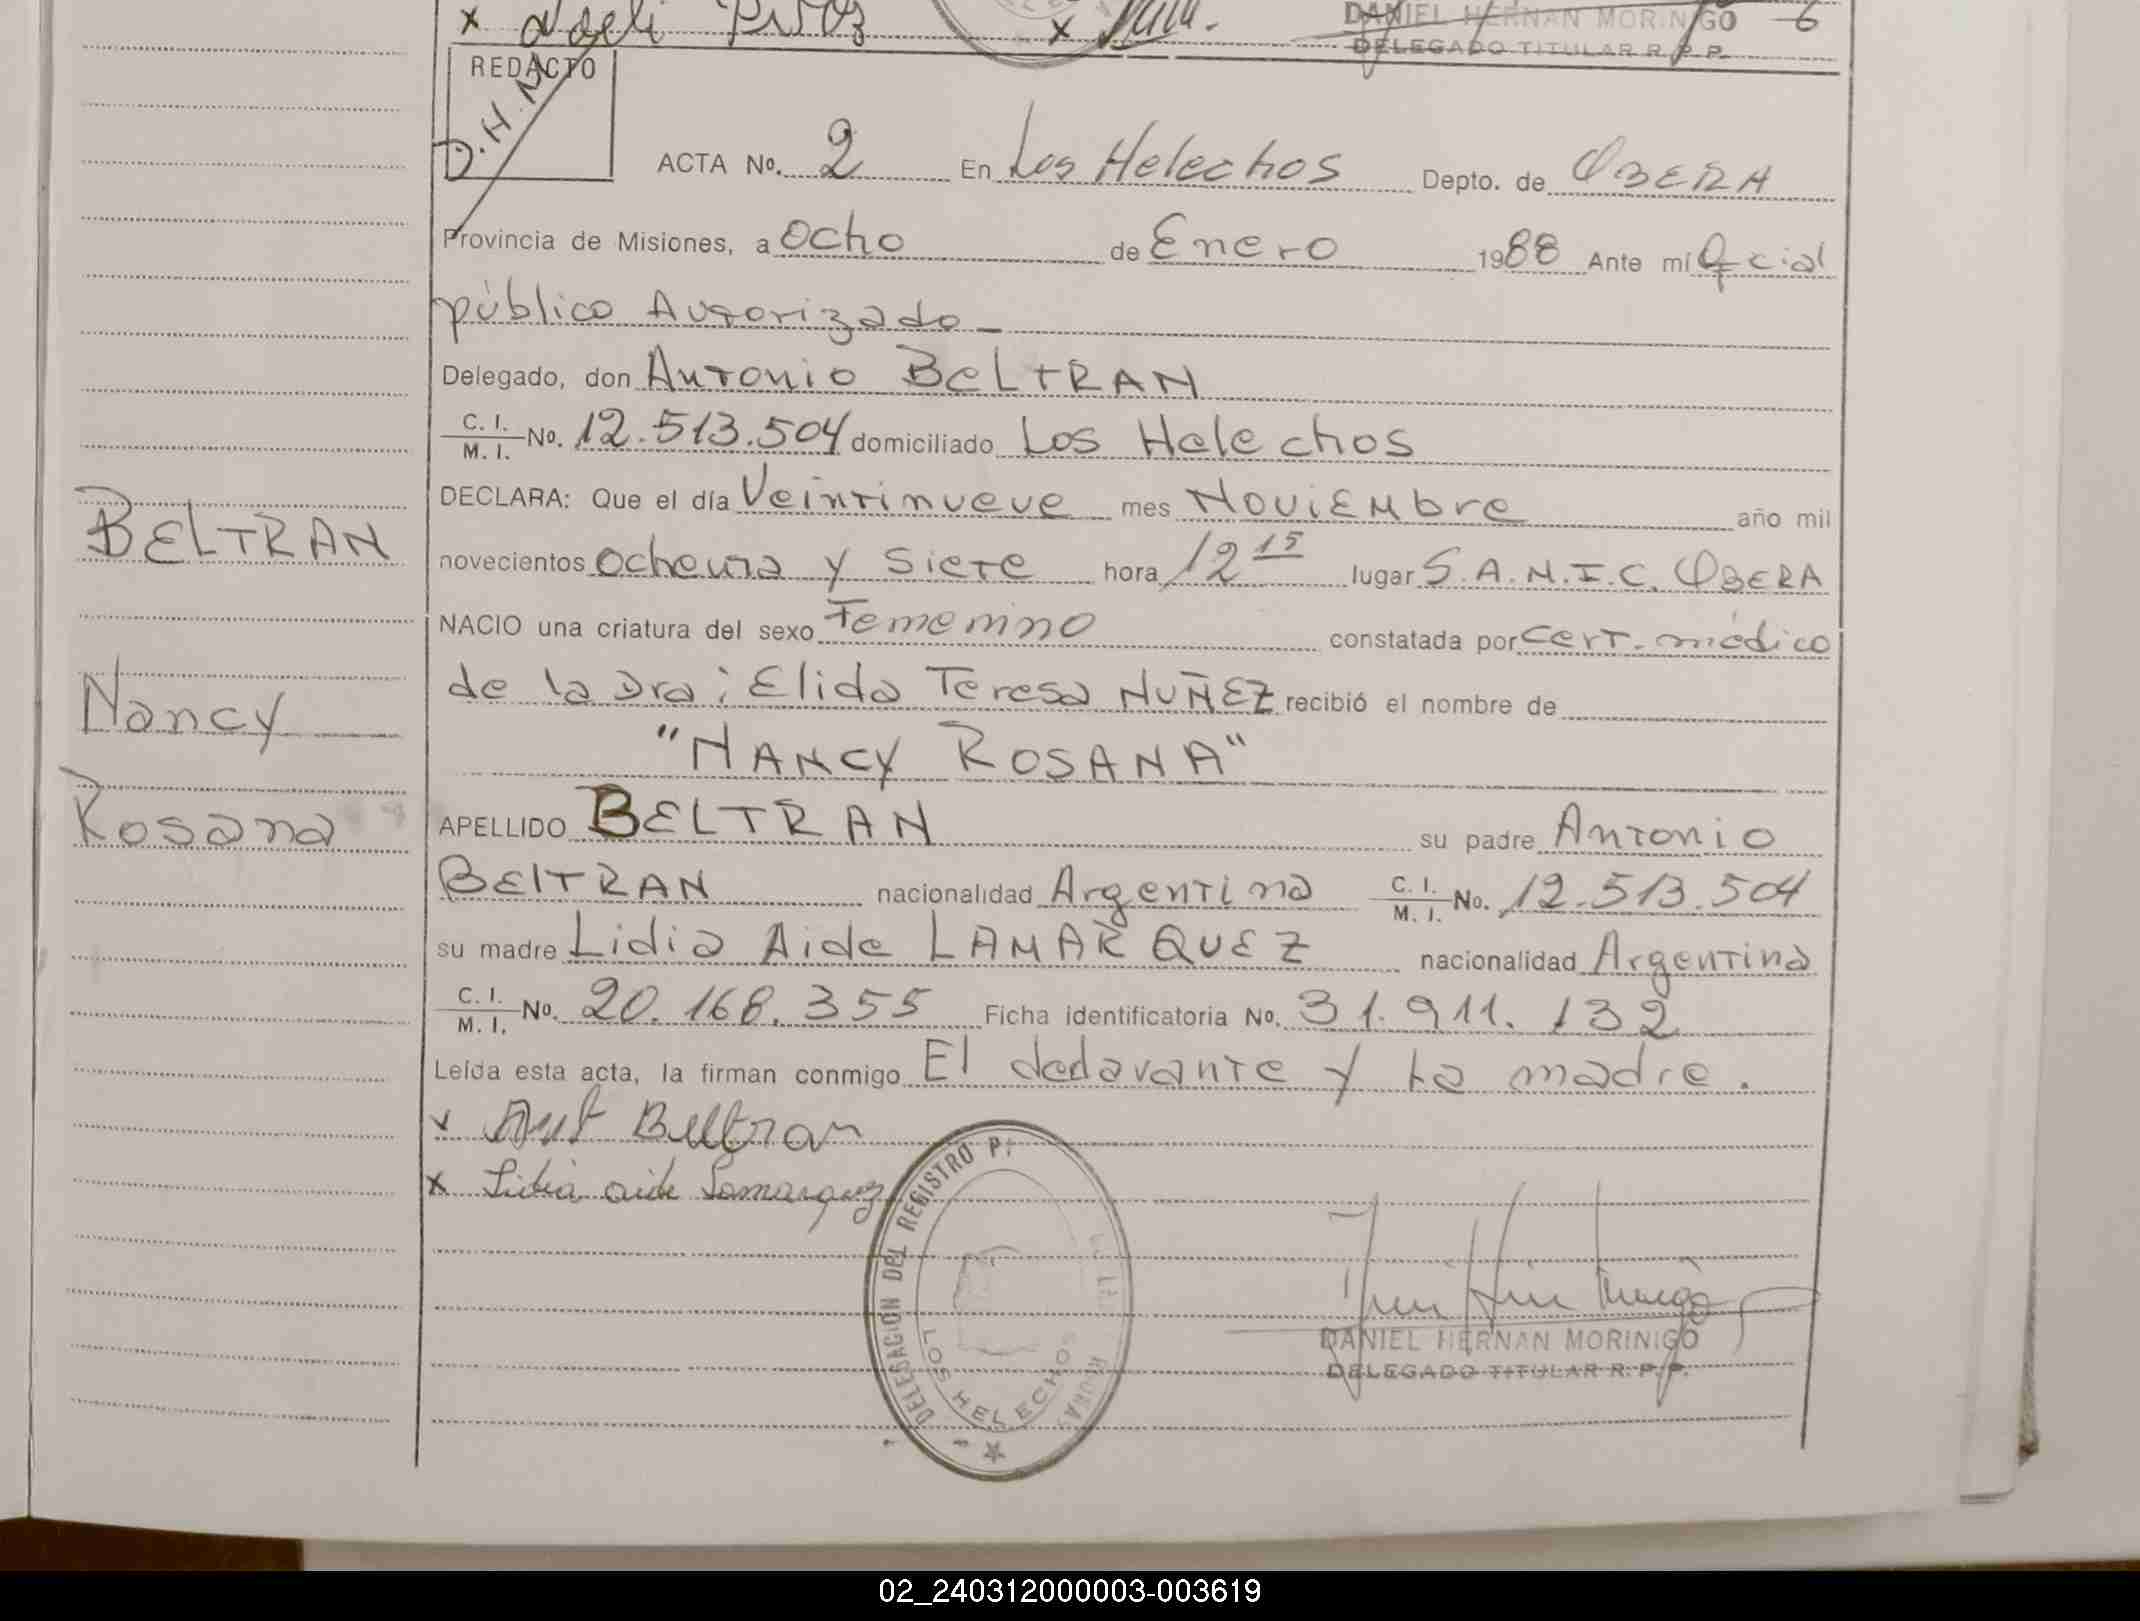 x Noeli
DANIEL HERNAN MORINIGO 6
DELEGADO TITULAR R. P. P.
REDACTO
D.H.M
ACTA Nº. 2 En Los Helechos Depto. de OBERA
Provincia de Misiones, a Ocho de Enero 1988 Ante mí Oficial
público Autorizado
Delegado, don Antonio BELTRAN
C. I. M. I. Nº. 12.513.504 domiciliado Los Helechos
DECLARA: Que el día Veintinueve mes Noviembre año mil
novecientos Ochenta y Siete hora 12 15 lugar S.A.M.I.C. OBERA
NACIO una criatura del sexo Femenino constatada por Cert. médico
de la Dra: Elida Teresa NUÑEZ recibió el nombre de
"NANCY ROSANA"
APELLIDO BELTRAN su padre Antonio
BELTRAN nacionalidad Argentina C. I. M. I. No. 12.513.504
su madre Lidia Aide LAMARQUEZ nacionalidad Argentina
C. I. M. I. Nº. 20.168.355 Ficha identificatoria Nº. 31.911.132
Leída esta acta, la firman conmigo El declarante y La madre.
x Ant Beltran
x Lidia aide Lamarquez
BELTRAN
Nancy
Rosana
DELEGACION DEL REGISTRO P.
LOS HELECHOS
DANIEL HERNAN MORINIGO
DELEGADO TITULAR R. P. P.
02_240312000003-003619